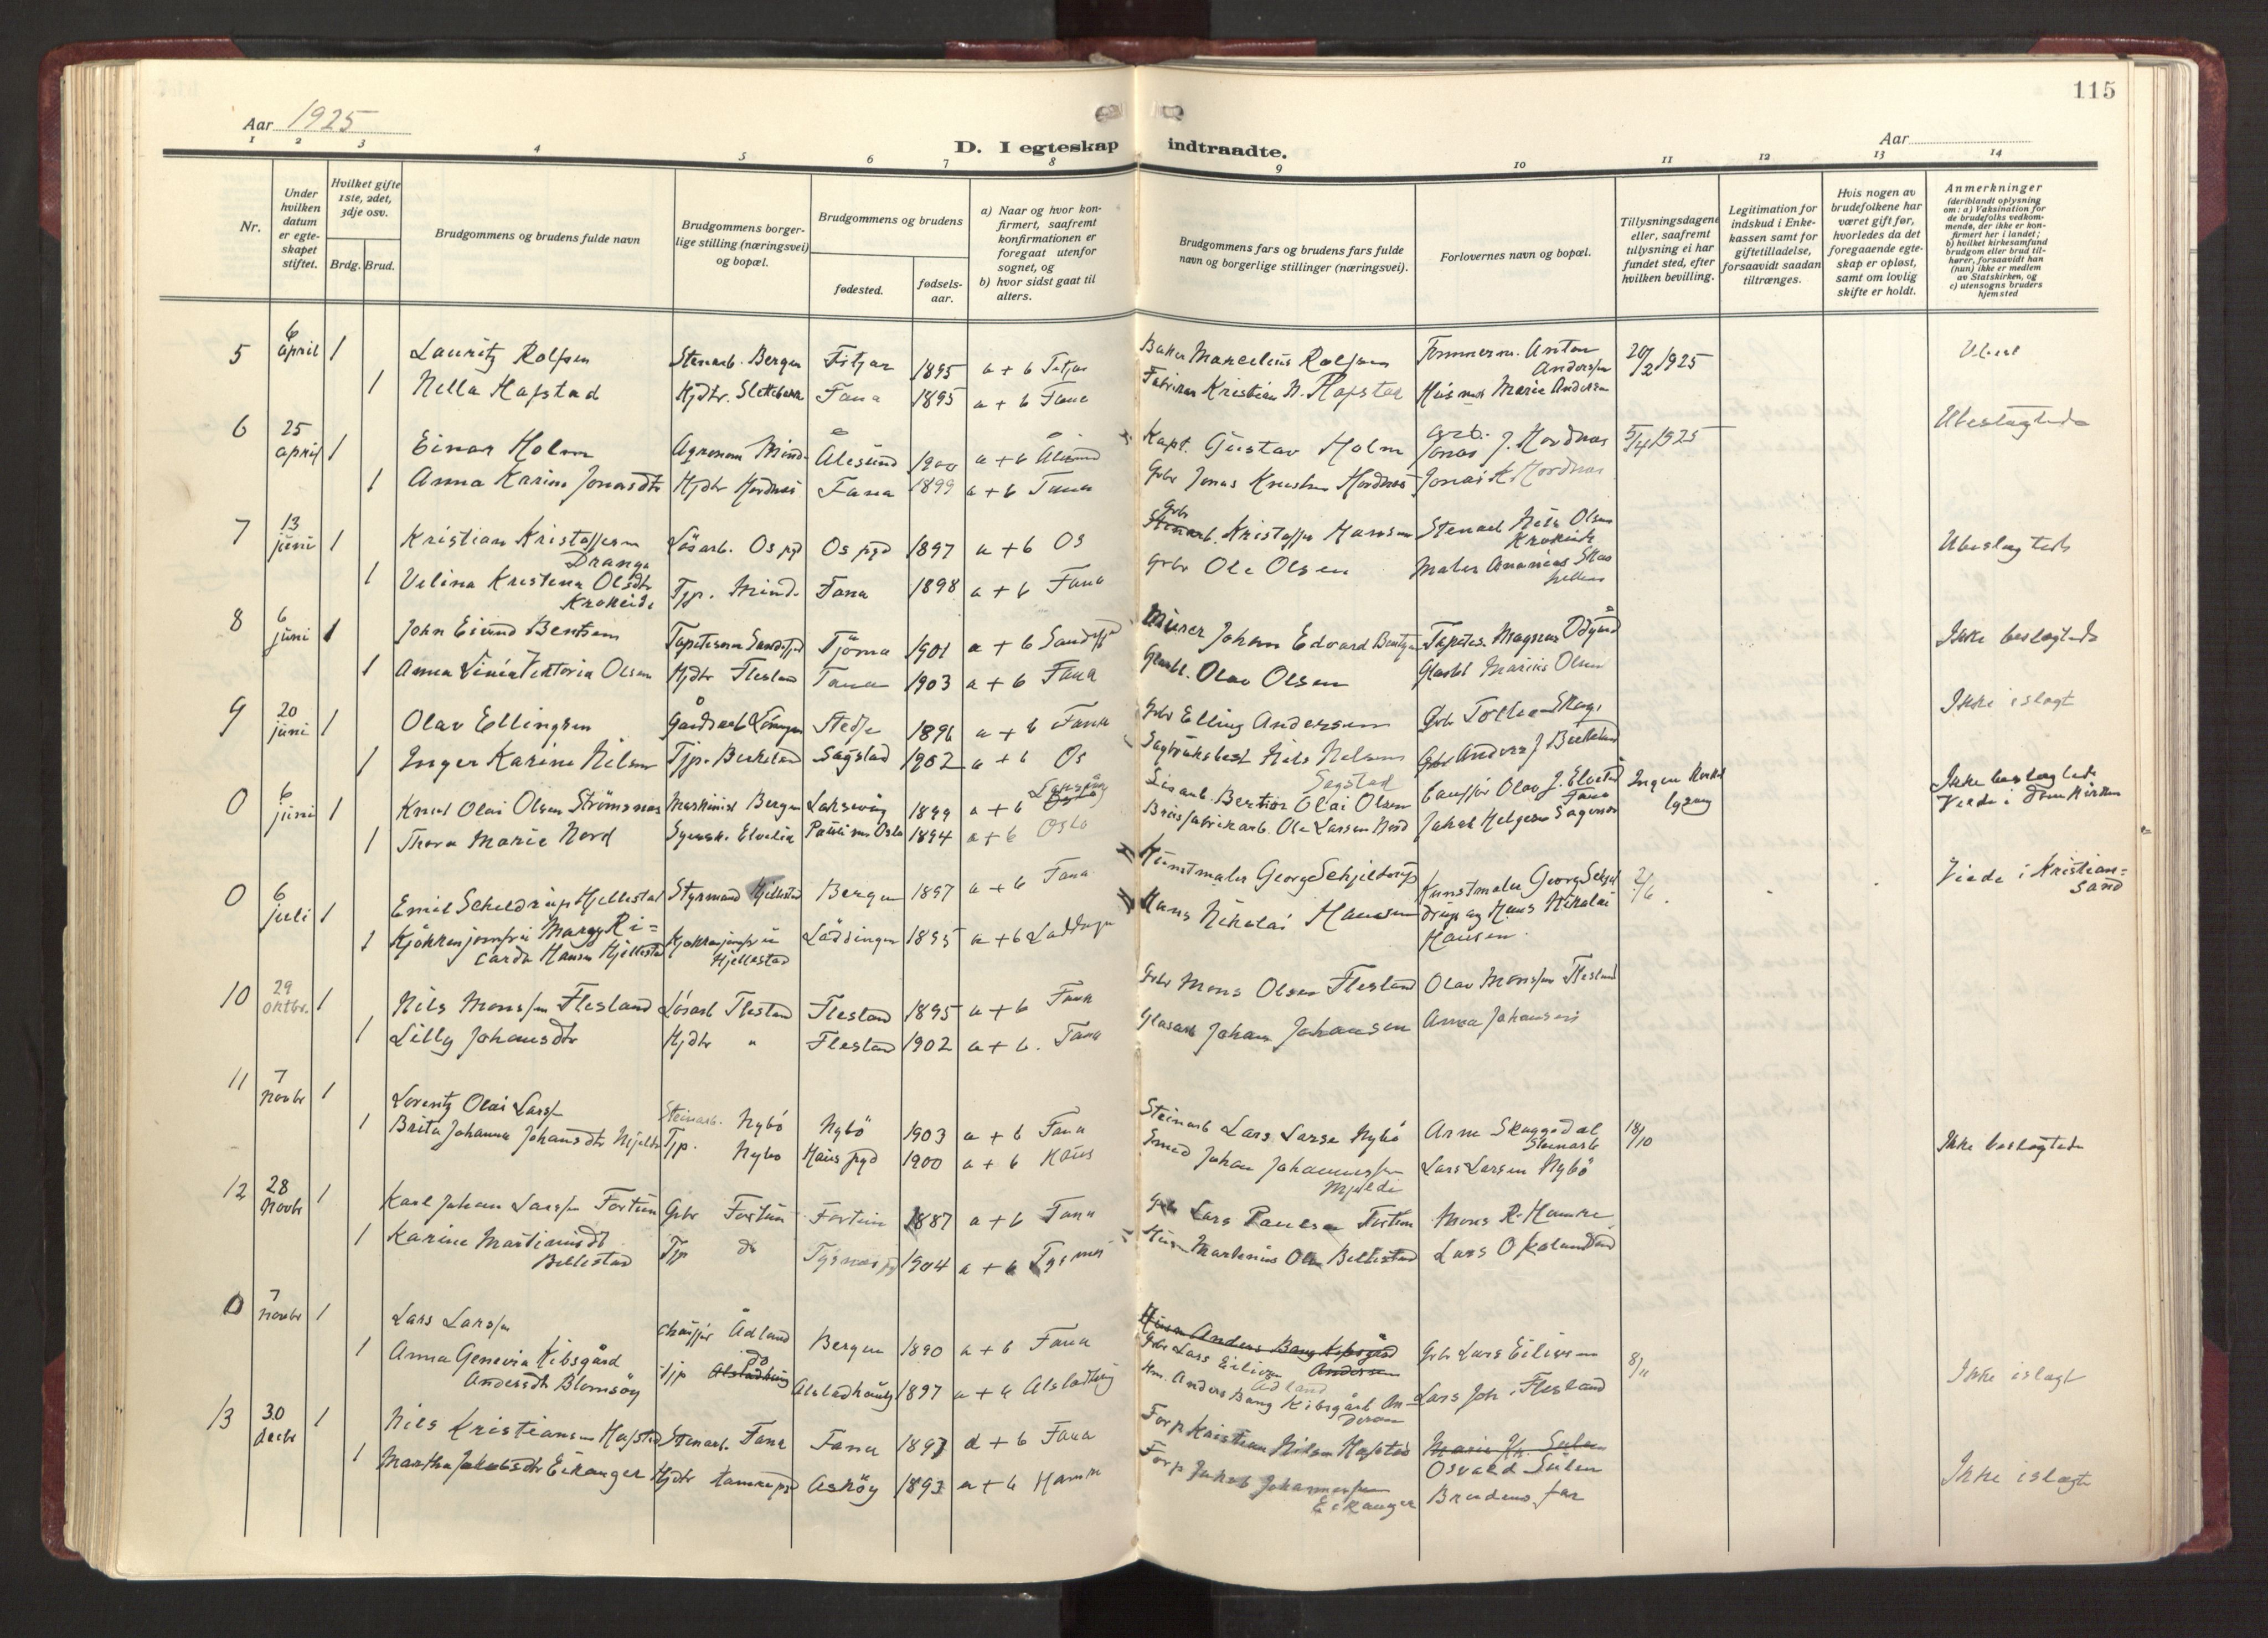 115
Aar 1925
Aar
D. I egteskap indtraadte.
1 2 3 4 5 6 7 8 9 10 11 12 13 14
Nr.
Under hvilken datum er egte-skapet stiftet.
Hvilket gifte 1ste, 2det, 3dje osv.
Brdg. Brud.
Brudgommens og brudens fulde navn
Brudgommens borger-lige stilling (næringsvei) og bopæl.
Brudgommens og brudens
fødested.
fødsels-aar.
a) Naar og hvor kon-firmert, saafremt konfirmationen er foregaat utenfor sognet, og
b) hvor sidst gaat til alters.
Brudgommens fars og brudens fars fulde navn og borgerlige stillinger (næringsvei).
Forlovernes navn og bopæl.
Tillysningsdagene eller, saafremt tillysning ei har fundet sted, efter hvilken bevilling.
Legitimation for indskud i Enke-kassen samt for giftetilladelse, forsaavidt saadan tiltrænges.
Hvis nogen av brudefolkene har været gift før, hvorledes da det foregaaende egte-skap er opløst, samt om lovlig skifte er holdt.
Anmerkninger (deriblandt oplysning om: a) Vaksination for de brudefolks vedkom-mende, der ikke er kon-firmert her i landet; b) hvilket kirkesamfund brudgom eller brud til-hører, forsaavidt han (hun) ikke er medlem av Statskirken, og c) utensogns bruders hjemsted
5 6 april 1 Lauritz Rolfsen Stenarb. Bergen Fitjar 1895 a + b Fitjar Marcelius Rolfsen Tømmerm. Anton Andersen 20/2 1925
1 Nella Hafstad Hjdtr. Slettebakk Fana 1895 a + b Fana Kristian N. Hafstad Marie Andersen
6 25 april 1 Einar Holm Agronom Mind. Ålesund 1900 a + b Ålesund Kapt. Gustav Holm Jonas J. Hordnes 5/4 1925 Ubeslægtede
1 Anna Karine Jonasdtr Hjdtr Hordnes Fana 1899 a + b Fana Gbr Jonas Hordnes Jonas K Hordnes
7 13 juni 1 Kristian Kristoffersen Drange Løsarb. Os pgd Os pgd 1897 a + b Os Gbr Kristoffer Hansen Stenarb Nils Olsen Krokeide Ubeslægtede
1 Velina Kristena Olsdtr Krokeide Tjp. Mind. Fana 1898 a + b Fana Gbr Ole Olsen Maler Ananias
8 6 juni 1 John Eivind Bentsen Sandefjd Tjöma 1901 a + b Sandefjd Murer Johan Edvard Bentsen Tapetes. Magnus Ikke beslægtede
1 Anna Viktoria Olsen Hjdtr Flesland Fana 1903 a + b Fana Olav Olsen Marius Olsen
9 20 juni 1 Olav Ellingsen Stedje 1896 a + b Fana Gbr Elling Andersen Gbr Ikke islegt
1 Inger Karine Nilsen Tjp. Birkeland Sagstad 1902 a + b Os Nils Nilsen Sagstad Gbr Anders J Birkeland
0 6 juni 1 Knut Olai Olsen Strömsnes Maskinist Bergen Laksevåg 1899 a + b Laksevåg Bertior Olai Olsen Olav J. Elvetun Fana Ingen Ikke beslægtede Viede i Domkirken
1 Thora Marie Nord Paulinus Oslo 1894 a + b Oslo Ole Larsen Nord Jakob Helgesen
0 6 juli 1 Emil Scheldrup Hjellestad Styrmand Hjellestad Bergen 1897 a + b Fana Kunstmaler Georg Schjeldrup Kunstmaler Georg og Hans Nikolai Hansen. 2/6. Viede i Kristian=sand
1 Kjøkkenjomfru Margy Ri=carda Hansen Hjellestad Kjøkkenjomfru Hjellestad Lødingen 1895 a + b Hans Nikolai Hansen
10 29 oktbr. 1 Nils Monssen Flesland Løsarb Flesland Flesland 1895 a + b Fana Gbr Mons Olsen Flesland Olav Monssen Flesland
1 Lilly Johansdtr Hjdtr " Flesland 1902 a + b. Fana Glasarb Johan Johansen Anna Johansen
11 7 Novbr 1 Lorentz Olai Larss. Steinarb. Nybö Nybö 1903 a + b Fana Steinarb Lars Larsen Nybö Arne Skuggedal Stenarb 18/10
1 Brita Johanna Johansdtr Mjelde Tjp. Nybö Haus pgd 1900 a + b Haus Smed Johan Johannessen Mjelde Lars Larsen Nybö Ikke beslegtede
12 28 Novbr 1 Karl Johan Larssen Fortun Gbr Fortun Fortun 1887 a + b Fana Gbr Lars Paulsen Fortun Mons R. Hamre
1 Karine Martinusdt Belle­stad Tjp do Tysnes pd 1904 a + b Tysnes Martinius Olsen Bellestad Lars O
0 7 novbr 1 Lars Larsen chauffør Ådland Bergen 1890 a + b Fana Husm Anders Bang Kibsgård Andersen Gbr Lars Eilivsen Ådland Gbr Lars Eilivsen 8/11
1 Anna Genevia Kibsgård Andersdtr Blomsöy Tjp Alstadhaug do Alstadhaug 1897 a + b Alstadhaug Hm. Anders Bang Kibsgård An=dersen Lars Joh. Flesland Ikke islegt
13 30 decbr 1 Nils Kristiansen Hafstad Stenarb. Fana Fana 1897 a + b Fana Forp Kristian Nilsen Hafstad Osvald
1 Martha Jakobsdtr Eikanger Hjdtr Hamre pgd Asköy 1893 a + b Hamre Forp Jakob Johannessen Eikanger Brudens far Ikke islegt